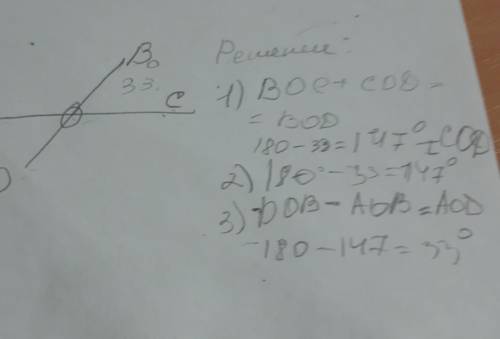 B
33°
C
O
Решение:
1) BOC + COD =
= BOD
180-33=147° = COD
2) 180° - 33 = 147°
3) DOB - AOB = AOD
180 - 147 = 33°